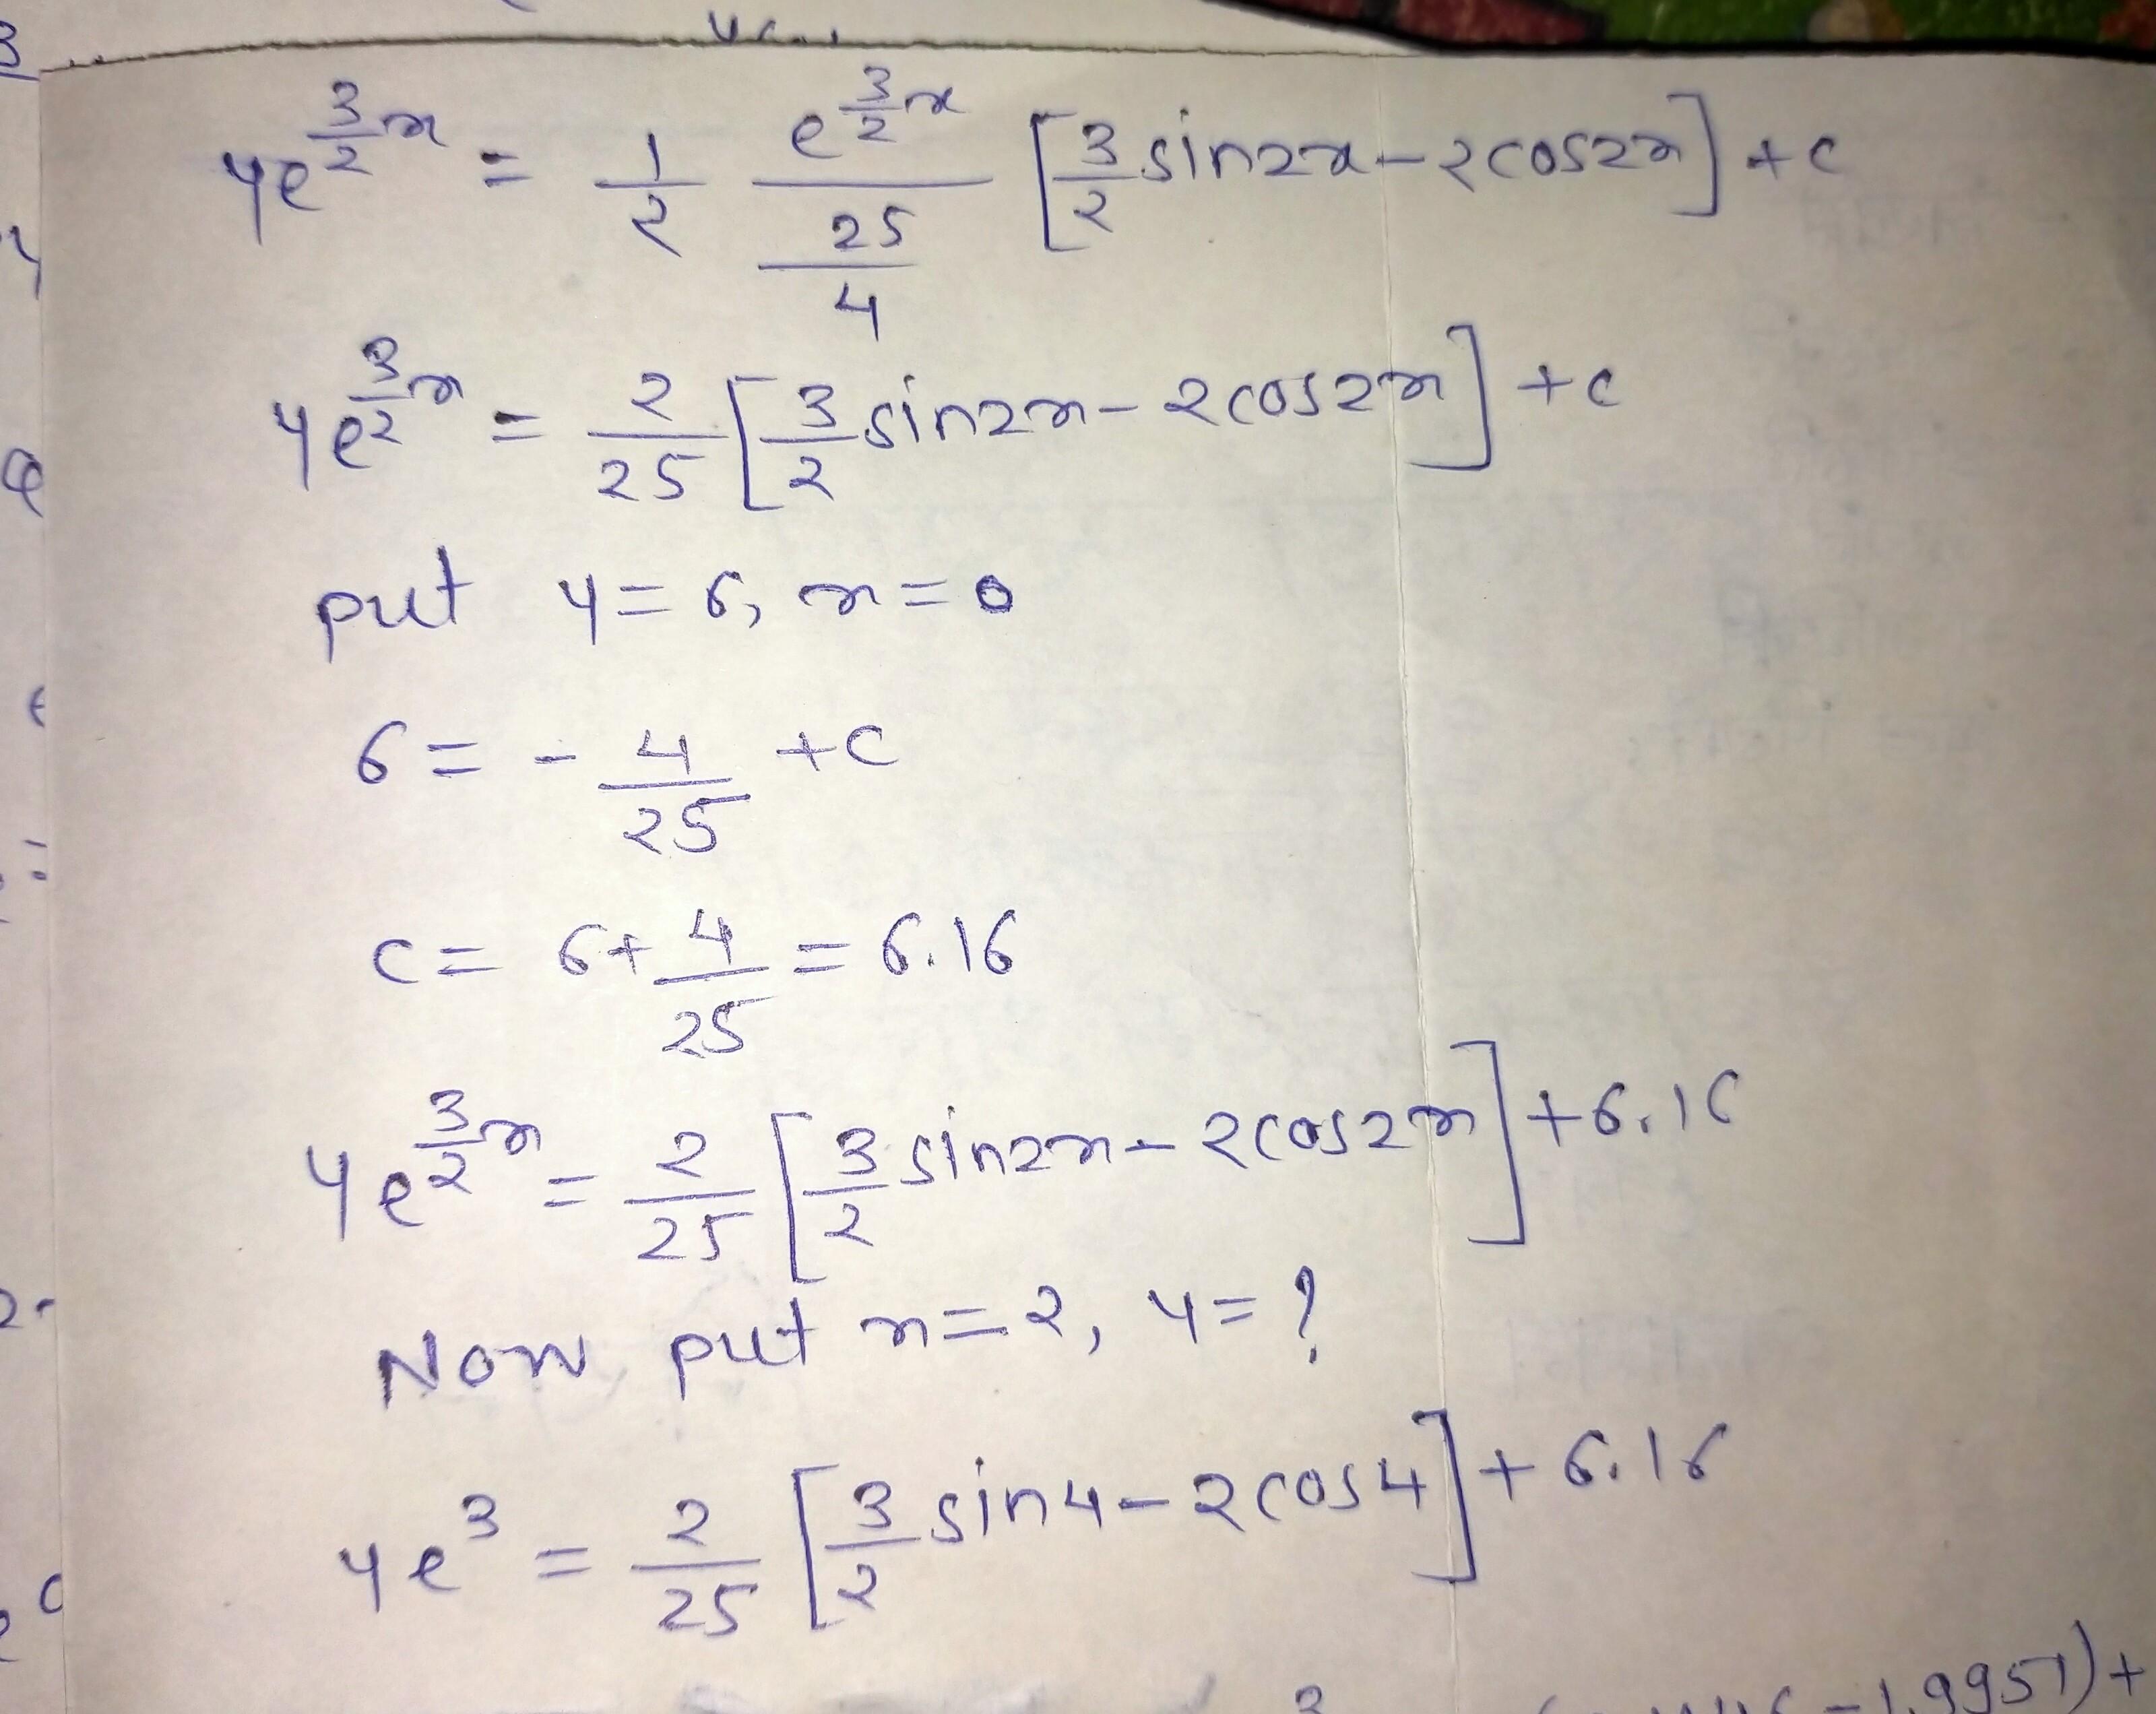 ye^{\frac{3}{2}x} = \frac{1}{2} \frac{e^{\frac{3}{2}x}}{\frac{25}{4}} [\frac{3}{2} sin2x - 2cos2x] + c
ye^{\frac{3}{2}x} = \frac{2}{25} [\frac{3}{2} sin2x - 2cos2x] + c
put y = 6, x = 0
6 = - \frac{4}{25} + c
c = 6 + \frac{4}{25} = 6.16
ye^{\frac{3}{2}x} = \frac{2}{25} [\frac{3}{2} sin2x - 2cos2x] + 6.16
Now put x = 2, y = ?
ye^{3} = \frac{2}{25} [\frac{3}{2} sin4 - 2cos4] + 6.16
- 1.9951) +